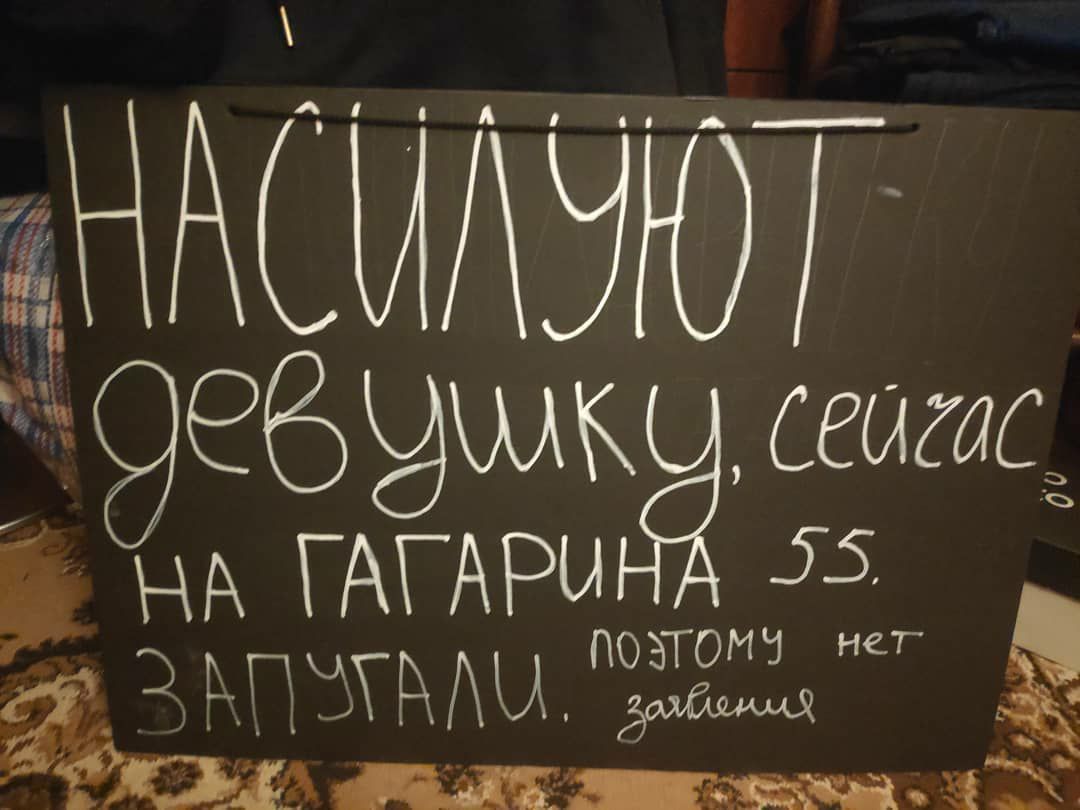 НАСИЛУЮТ
девушку, сейчас
НА ГАГАРИНА 55.
ЗАПУГАЛИ. ПОЭТОМУ нет
заявления